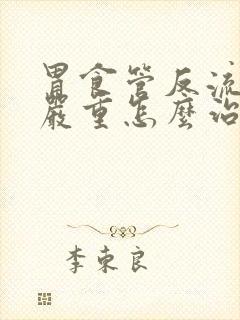 胃食管反流
嚴重怎麼治
李東良